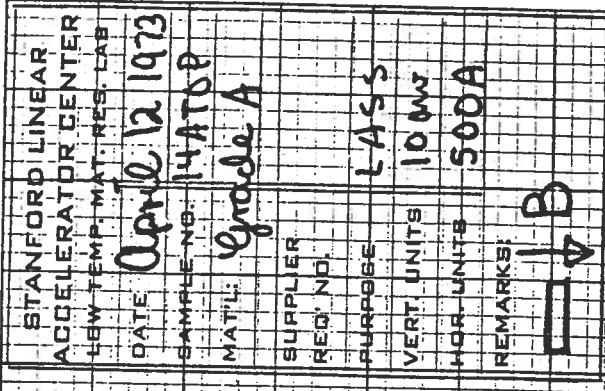 STANFORD LINEAR
ACCELERATOR CENTER
LOW TEMP. MAT. RES. LAB
DATE April 12 1973
SAMPLE NO. 14ATOP
MAT'L: Grade A
SUPPLIER
REQ' NO.
PURPOSE LASS
VERT. UNITS 10 mv
HOR. UNITS 500A
REMARKS:
B